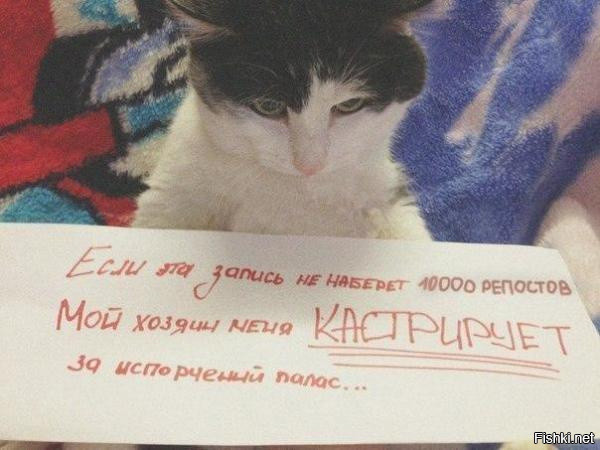 Если эта запись не наберет 10000 репостов
Мой хозяин меня КАСТРИРУЕТ
за испорчений палас...
Fishki.net